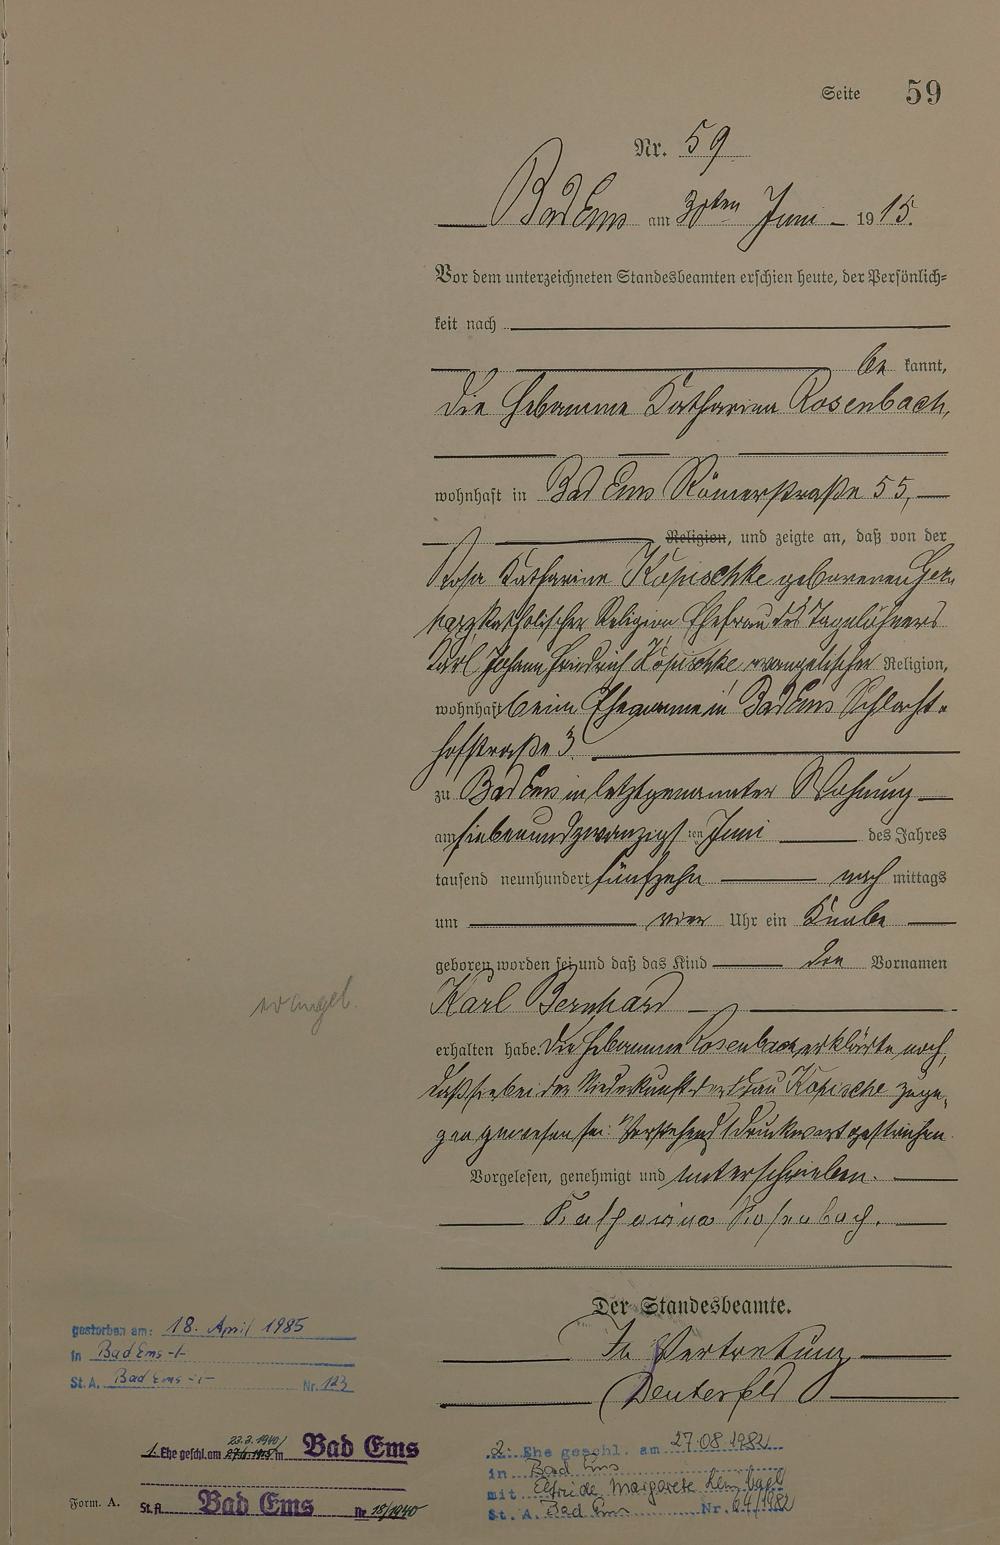 Seite 59
Nr. 59
Bad Ems am 30ten Juni 1915.
Vor dem unterzeichneten Standesbeamten erschien heute, der Persönlich-
keit nach
be kannt,
die Hebamme Katharina Rosenbach,
wohnhaft in Bad Ems Römerstraße 55,
Religion, und zeigte an, daß von der
Rosa Katharina Köpischke geborenen
katholischer Religion Ehefrau des Tagelöhners
Karl Johann Friedrich Köpischke evangelischer Religion,
wohnhaft beim Ehemanne in Bad Ems Schlacht-
hofstraße 3
zu Bad Ems in letztgenannter Wohnung
am siebenundzwanzigsten Juni des Jahres
tausend neunhundert fünfzehn nach mittags
um vier Uhr ein Knabe
geboren worden sei und daß das Kind den Vornamen
Karl Bernhard
erhalten habe. Die Hebamme Rosenbach erklärte noch,
daß sie bei der Niederkunft der Frau Köpische zuge-
gen gewesen sei. Vorstehend 1 Druckwort gestrichen
Vorgelesen, genehmigt und unterschrieben.
Katharina Rosenbach.
Der Standesbeamte.
In Vertretung
evangel.
gestorben am: 18. April 1985
in Bad Ems
St. A. Bad Ems Nr. 123
1. Ehe geschl. am 23.3.1940 in Bad Ems
St. A. Bad Ems Nr 18/1940
2. Ehe geschl. am 27.08.1982
in Bad Ems
mit Elfriede Margarete
St. A. Bad Ems Nr. 64/1982
Form. A.